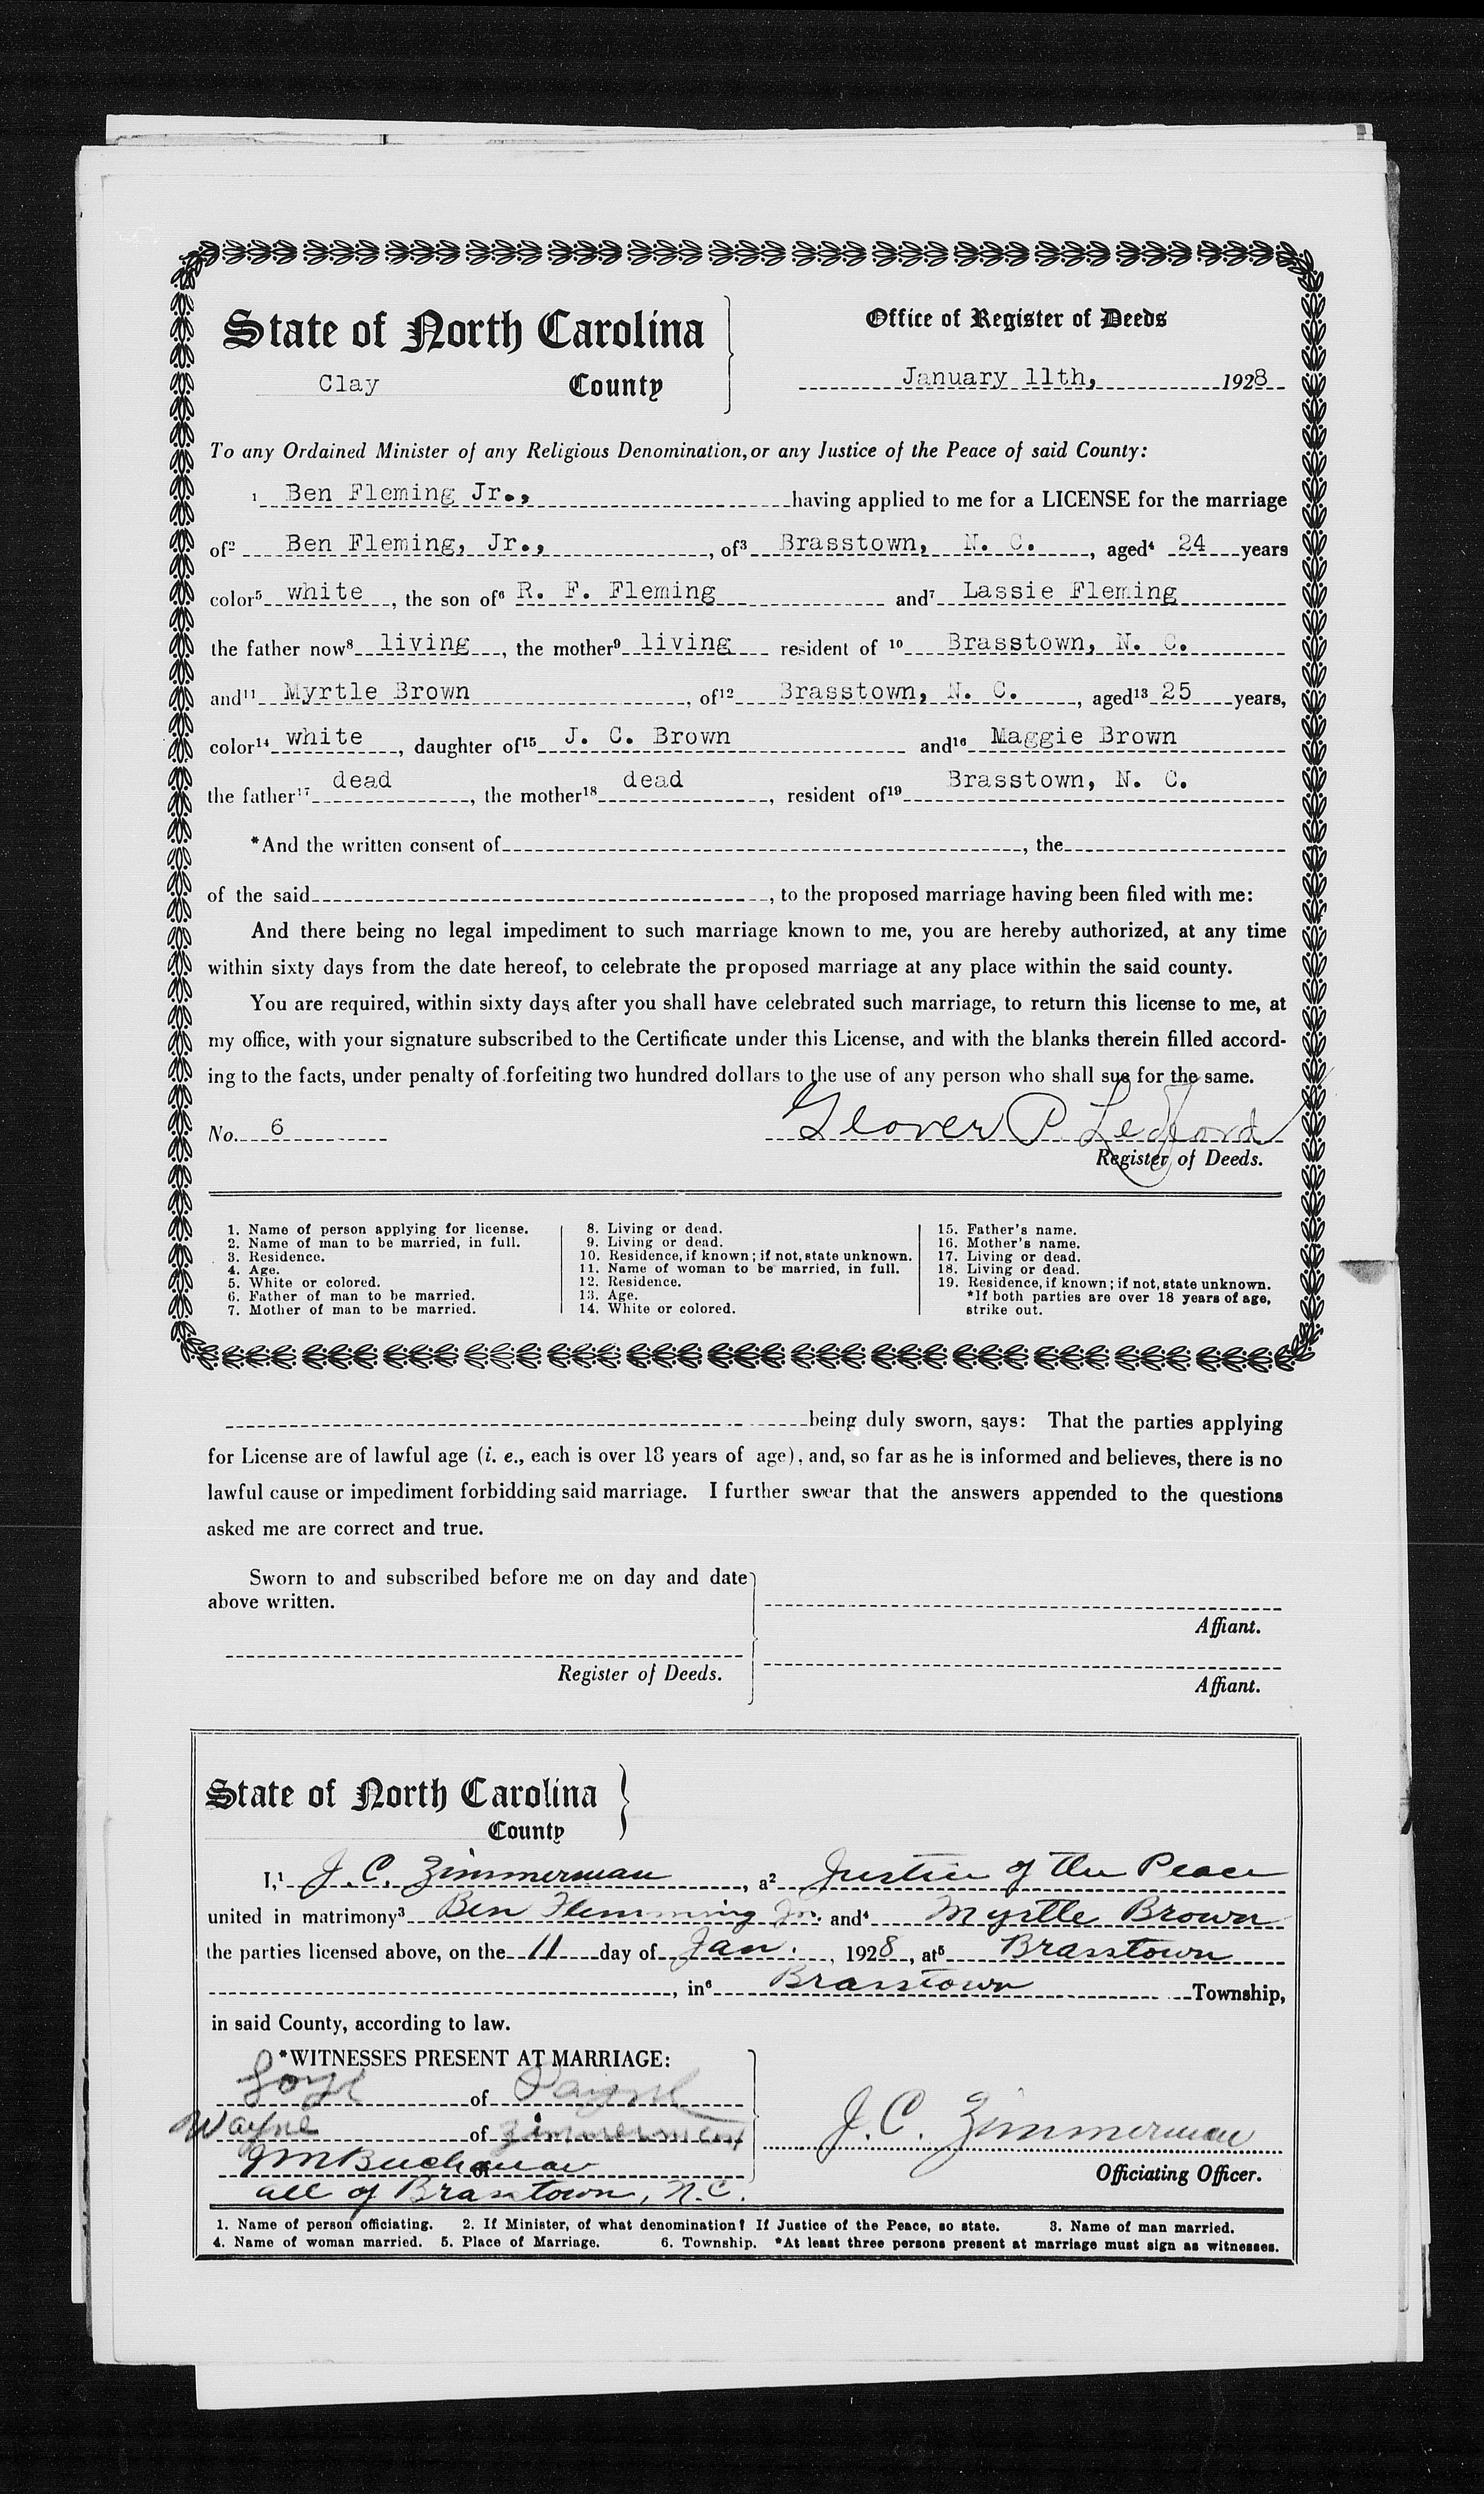 State of North Carolina
Clay County
Office of Register of Deeds
January 11th, 1928
To any Ordained Minister of any Religious Denomination, or any Justice of the Peace of said County:
1 Ben Fleming Jr., having applied to me for a LICENSE for the marriage
of2 Ben Fleming, Jr., , of3 Brasstown, N. C. , aged4 24 years
color5 white , the son of6 R. F. Fleming and7 Lassie Fleming
the father now8 living , the mother9 living resident of 10 Brasstown, N. C.
and11 Myrtle Brown , of12 Brasstown, N. C. , aged13 25 years,
color14 white , daughter of15 J. C. Brown and16 Maggie Brown
the father17 dead , the mother18 dead , resident of19 Brasstown, N. C.
*And the written consent of , the
of the said , to the proposed marriage having been filed with me:
And there being no legal impediment to such marriage known to me, you are hereby authorized, at any time
within sixty days from the date hereof, to celebrate the proposed marriage at any place within the said county.
You are required, within sixty days after you shall have celebrated such marriage, to return this license to me, at
my office, with your signature subscribed to the Certificate under this License, and with the blanks therein filled accord-
ing to the facts, under penalty of forfeiting two hundred dollars to the use of any person who shall sue for the same.
No. 6 Glover P. Ledford
Register of Deeds.
1. Name of person applying for license.
2. Name of man to be married, in full.
3. Residence.
4. Age.
5. White or colored.
6. Father of man to be married.
7. Mother of man to be married.
8. Living or dead.
9. Living or dead.
10. Residence, if known; if not, state unknown.
11. Name of woman to be married, in full.
12. Residence.
13. Age.
14. White or colored.
15. Father's name.
16. Mother's name.
17. Living or dead.
18. Living or dead.
19. Residence, if known; if not, state unknown.
*If both parties are over 18 years of age,
strike out.
being duly sworn, says: That the parties applying
for License are of lawful age (i. e., each is over 18 years of age), and, so far as he is informed and believes, there is no
lawful cause or impediment forbidding said marriage. I further swear that the answers appended to the questions
asked me are correct and true.
Sworn to and subscribed before me on day and date
above written.
Affiant.
Register of Deeds.
Affiant.
State of North Carolina
County
I,1 J. C. Zimmerman , a2 Justice of the Peace
united in matrimony3 Ben Flemming Jr. and4 Myrtle Brown
the parties licensed above, on the 11 day of Jan. , 1928 , at5 Brasstown
, in6 Brasstown Township,
in said County, according to law.
*WITNESSES PRESENT AT MARRIAGE:
of Payne
Wayne of Zimmerman
J M Buchanan
all of Brasstown, N.C.
J. C. Zimmerman
Officiating Officer.
1. Name of person officiating. 2. If Minister, of what denomination? If Justice of the Peace, so state. 3. Name of man married.
4. Name of woman married. 5. Place of Marriage. 6. Township. *At least three persons present at marriage must sign as witnesses.